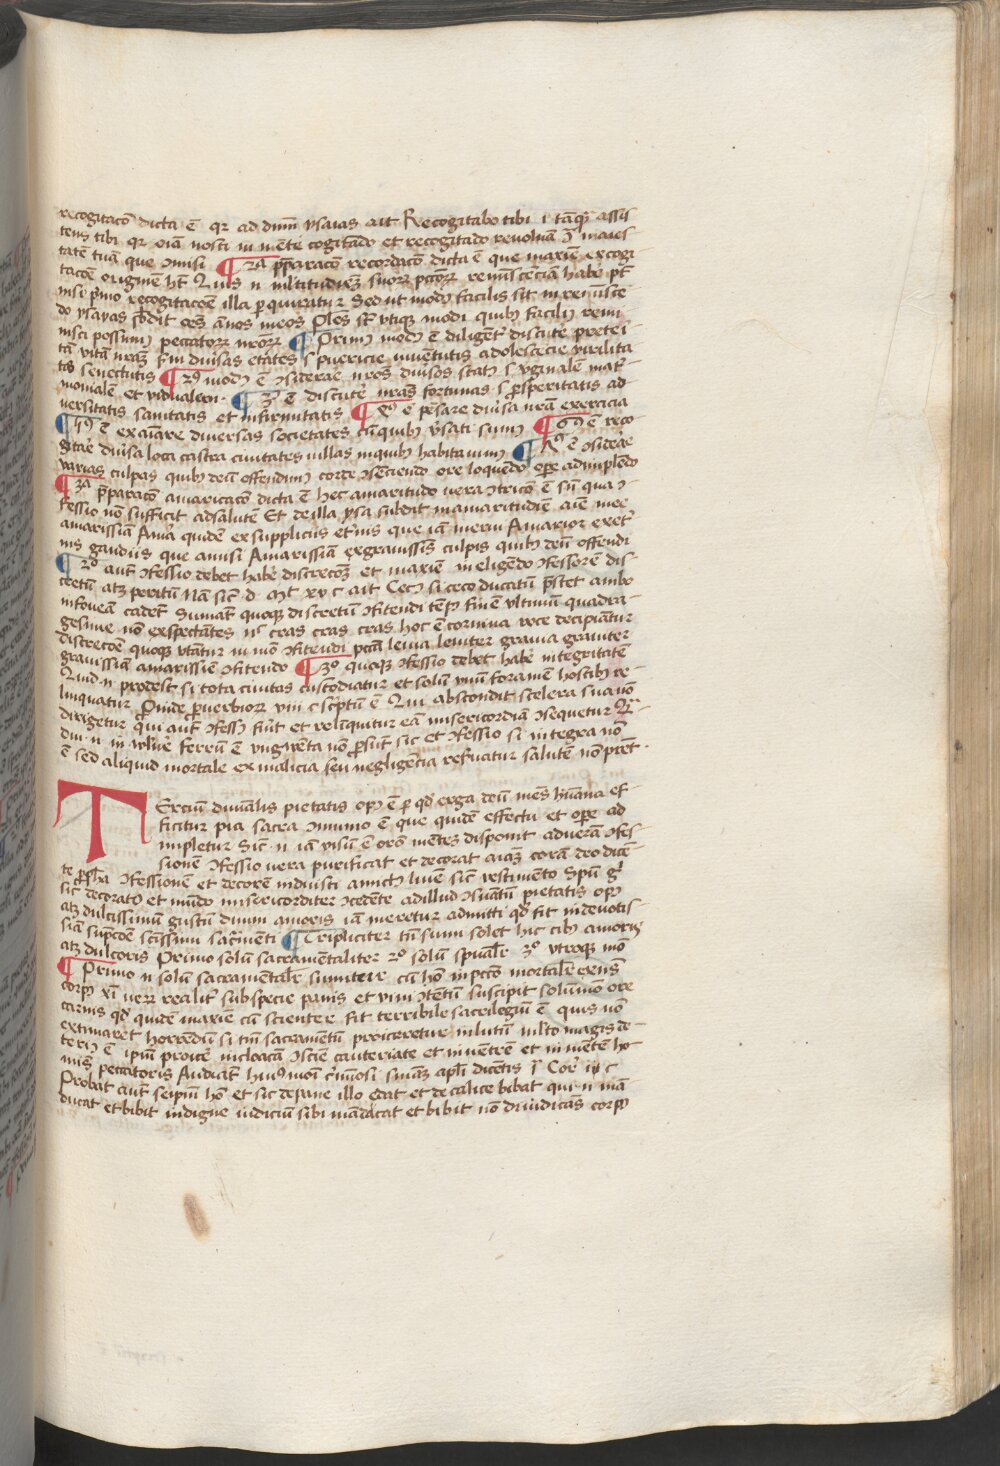 recogitacō dicta ē qr ad dnm̄ ysaias ait Recogitabo tibi i tāqȝ assis
tens tibi qr oīa nosti in mēte cogitādo et recogitādo revoluā ꝯ maies
tatē tuā que amisi ¶ 2ª p̄paracō recordacō dicta ē que maxīe excogi
tacōe originē hȝ Quis n̄ mltitudinēȝ suorꝝ pctorꝝ reminiscēciam habē pt̄
nisi p̄mo recogitacōem illa p quiratur Sed ut modȝ facilis sit in reminisce
do ysayas sbdit oēs ānos meos Ples st̄ vtiqȝ modi quibȝ faciliȝ remi
nisci possumȝ peccatorꝝ nrorꝝ ¶ Primȝ modȝ ē diligent̄ discute preteri
tā vitā nrāȝ scdm̄ diuˀsas etates s puericie iuuētutis adolescēcie virilita
tis senectutis ¶ 2ȝ modȝ ē ꝯsiderae nros diuˀsos statȝ s vginale matˀ
monialē et vidualem ¶ 3ȝ ē discutē nrās fortunas s ꝓsperitatis ad
uersitatis sanitatis et infirmitatis ¶ 4ȝ ē pēsare diuˀsa nrā exercicia
¶ 5ȝ ē exaīare diuersas societates cū quibȝ vˀsati sumȝ ¶ 6ȝ ē reco
gitāe diuˀsa loca castra ciuitates villas in quibȝ habitauimȝ ¶ 7ȝ ē ꝯsiderae
varias culpas quibȝ deū offendimȝ corde ꝯsēciendo ore loquēdo opē adimplēdo
¶ 3ª p̄paracō amaricacō dicta ē hec amaritudo vera ꝯtricō ē sn̄ qua ꝯ
fessio nō sufficit ad salutē Et de illa ysa subdit in amaritudīe aīe mee
amarissīa Aīa quidē ex suppliciis etˀnis que iā merui Amarior ex etˀ
nis gaudiis que amisi Amarissīa ex grauissīs culpis quibȝ deū offendi
¶ 2º aut ꝯfessio debet habē discrecōȝ et maxīe in eligēdo ꝯfessorē dis
cretū atqȝ peritū Nā sic d mt xv c ait Cecȝ si ceco ducatū p̄stet ambo
in foveā cadet Sumat quoqȝ discretiū ꝯfitendi tēpȝ finē vltimū quadra
gesime nō exspectātes nȝ cras cras cras hoc ē cornina voce decipiātur
Discrecōe quoqȝ vtātur in mō ꝯfitendi pctā leuia leuiter grauia grauiter
grauissīa amarissīe ꝯfitendo ¶ 3º quoqȝ ꝯfessio debet habē integritatē
Quid n̄ prodest si tota ciuitas custodiatur et solū vnū foramē hostibȝ re
linquatur Proinde puerbiorꝝ viii c scptū ē Qui abscondit scelera sua nō
dirigetur qui aut ꝯfessȝ fuit et reliquitur eā misericordiā ꝯsequetur
diu n̄ in wlne ferrū ē vngwēta nō ꝓsūt sic et ꝯfessio si integra nō
ē sed aliquid mortale ex malicia seu negligēcia resuatur salutē nō pret
Tercium diuinalis pietatis opȝ ē p qd erga deū mēs hūana ef
ficitur pia sacra ꝯmunio ē que quidē effectu et opē ad
impletur Sic n̄ iā visū ē oro mētes disponit ad verā ꝯfes
sionē ꝯfessio vera purificat et decorat aīaȝ corā deo dicē
te psltā ꝯfessionē et decorē induisti amictȝ lumē sic vestimēto Sꝑū gˀ
sic decoratȝ et mūdo misericorditer ꝯcedēte ad illud ꝯsuātū pietatis opȝ
atqȝ dulcissimū gustū diuini amoris iā meretur admitti qd fit in deuotis
siā supcōe scīssimi sacrmenti ¶ Tripliciter tn̄ sumi solet hic cibȝ amoris
atqȝ dulcoris Primo solū sacramētaliter 2º solū spūale 3º vtroqȝ mō
¶ Primo n̄ solū sacramētale sumitur cū hō in pctō mortale exns̄
corpȝ xi verꝝ realitˀ sub specie panis et vini ꝯtētū suscipit solūmō ore
carnis qd quidē maxīe cū scienter e fit terribile sacrilegiū ē quis nō
extimaret horrēdū si tm̄ sacramētū proiceretur in lutū mlto magis de
teriȝ ē ipm̄ proicē in cloacā ꝯsciē cauteriate et in uētrē et in mētē ho
mīs peccatoris Audiāt hiȝmōi cˀminosi smāȝ apli dicētis i Cor xi c
Probat aut seipm̄ hō et sic de pane illo edat et de calice bibat qui n̄ mā
ducat et bibit indigne iudiciū sibi māducat et bibit nō diiudicās corpȝ